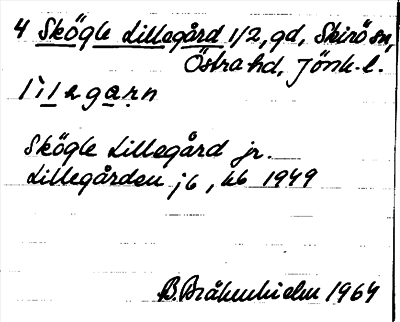 4 Skögle Lillegård 1/2, gd, Skirö sn,
Östra hd, Jönk. l.
lìlegarn
Skögle Lillegård jr.
Lillegården j6, ub 1949
B. Bråkenhielm 1964